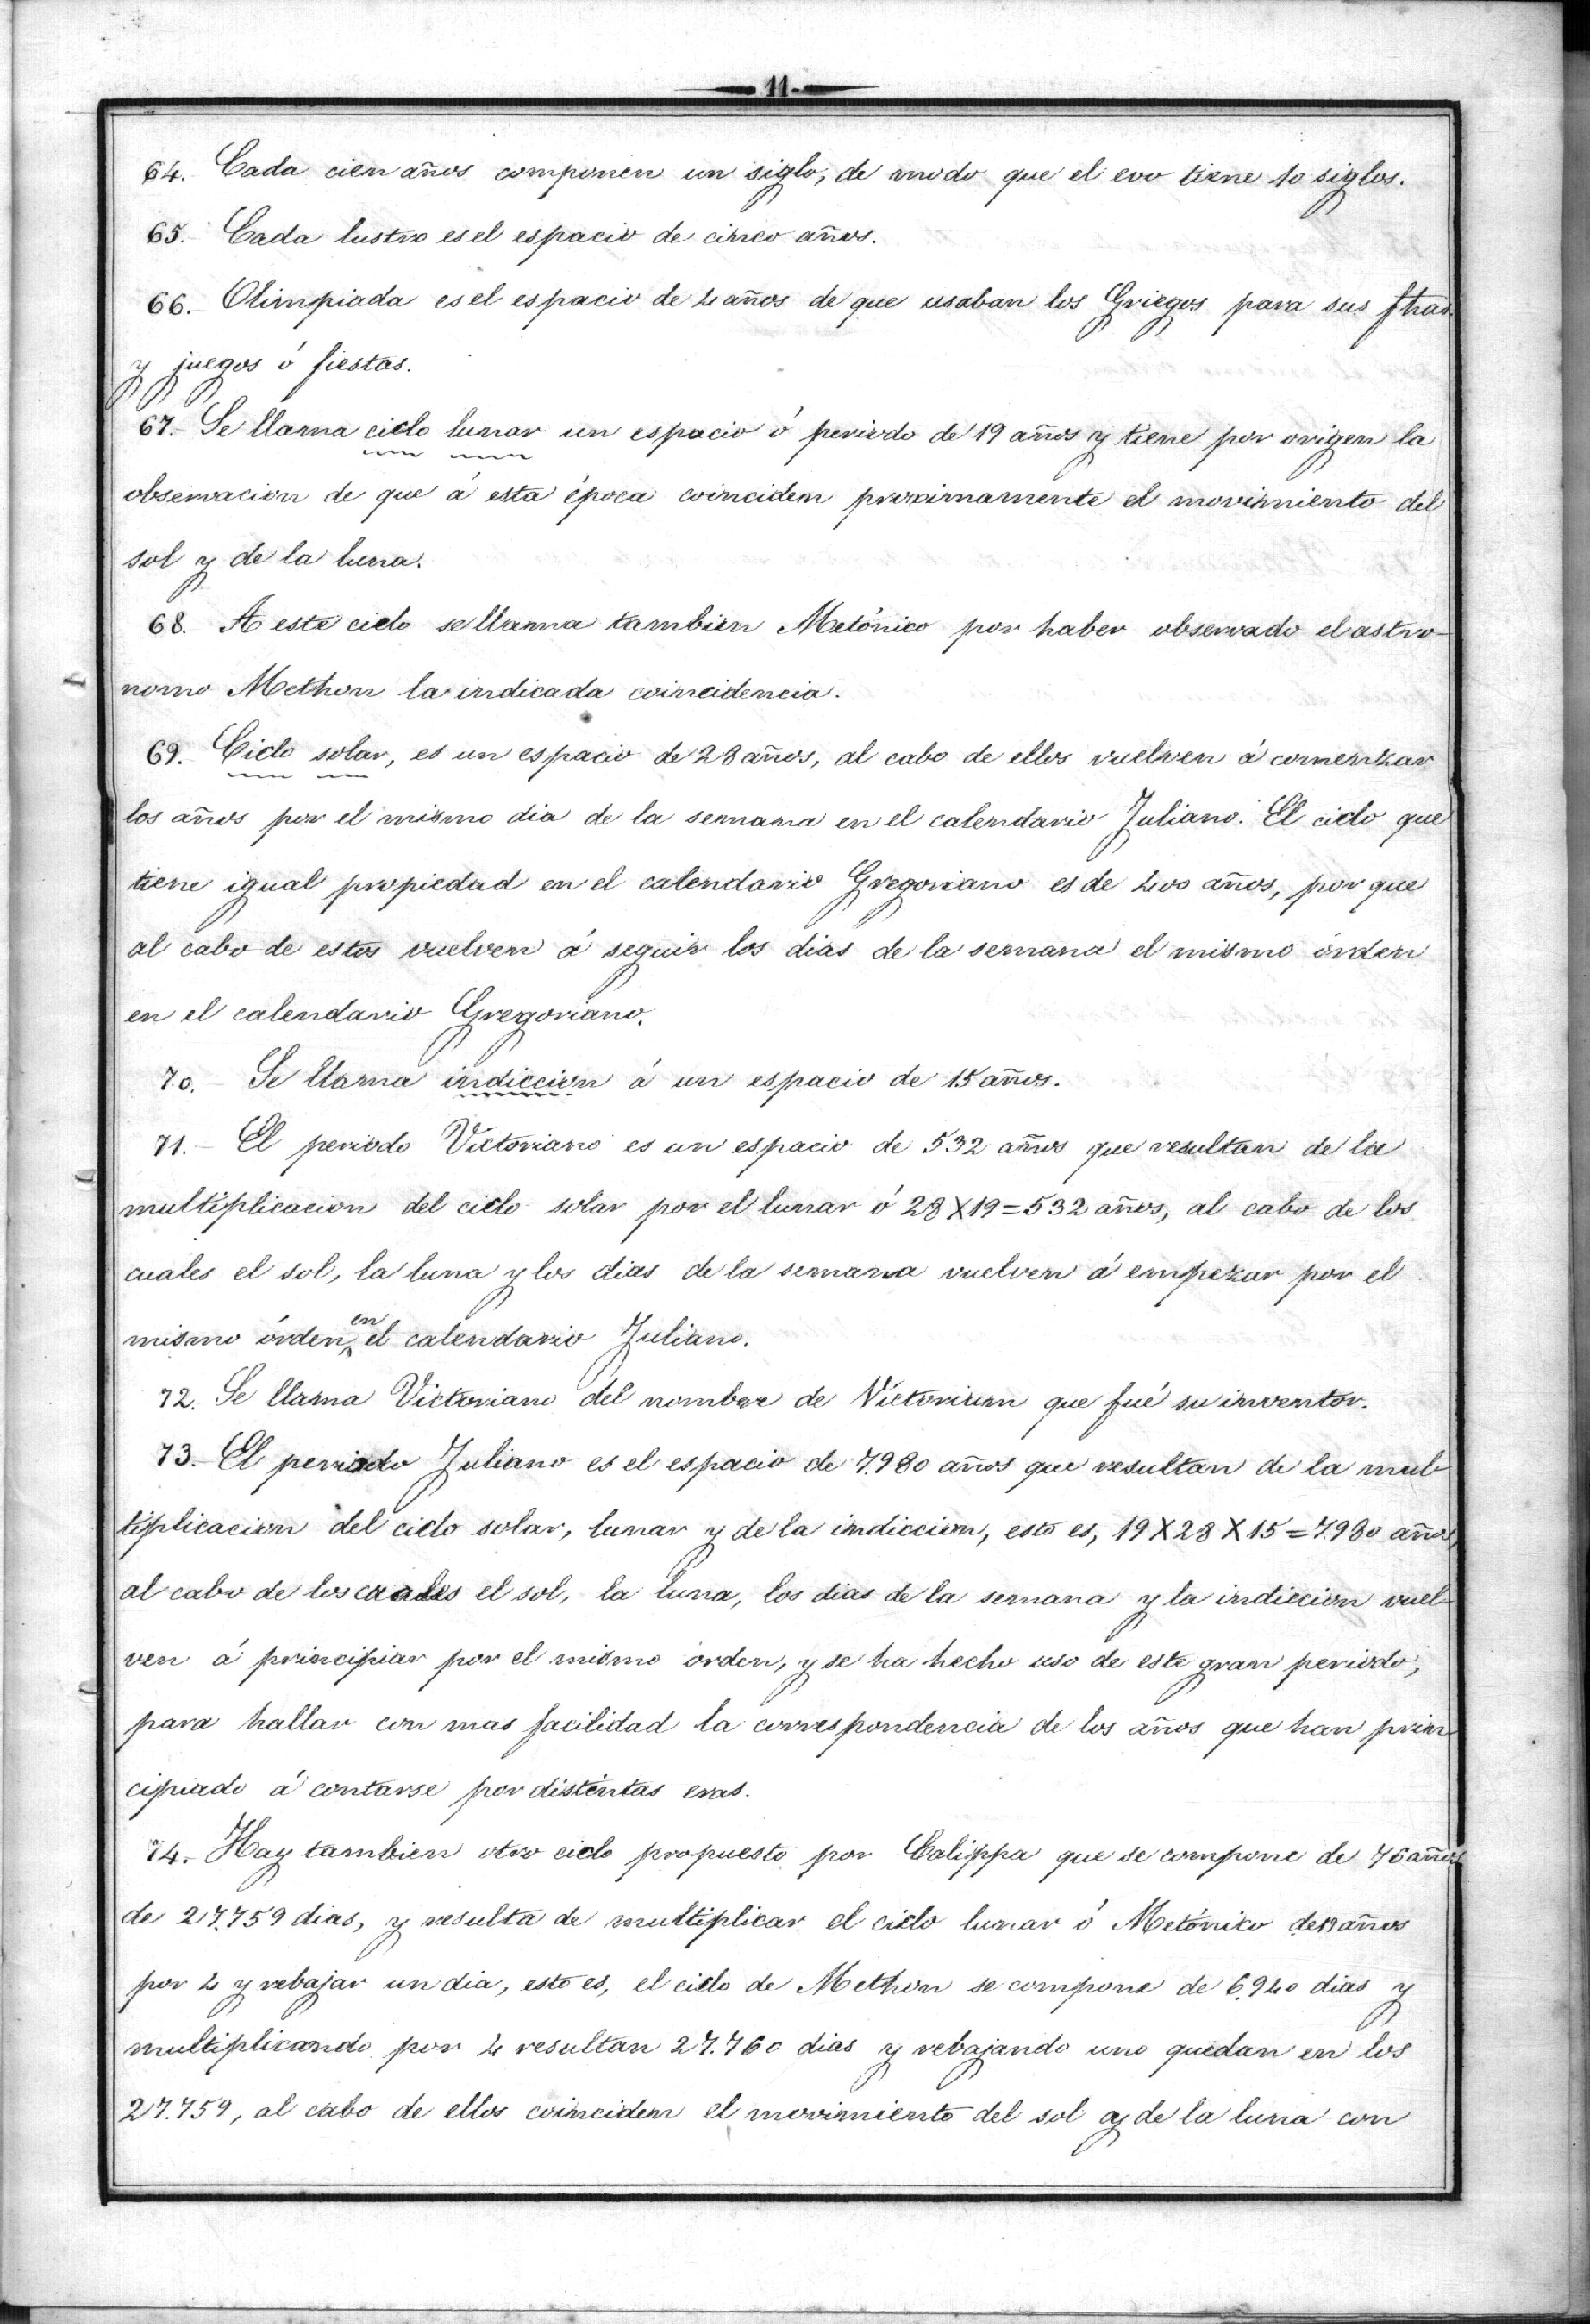 11
64. Cada cien años componen un siglo, de modo que el evo tiene 10 siglos.
65. Cada lustro es el espacio de cinco años.
66. Olimpiada es el espacio de 4 años de que usaban los Griegos para sus fhas
y juegos ó fiestas.
67. Se llama ciclo lunar un espacio ó periodo de 19 años y tiene por origen la
observacion de que á esta época coinciden proximamente el movimiento del
sol y de la luna.
68. A este ciclo se llama tambien Metónico por haber observado el astro-
nomo Methon la indicada coincidencia.
69. Ciclo solar, es un espacio de 28 años, al cabo de ellos vuelven á comenzar
los años por el mismo dia de la semana en el calendario Juliano. El ciclo que
tiene igual propiedad en el calendario Gregoriano es de 400 años, por que
al cabo de estos vuelven á seguir los dias de la semana el mismo órden
en el calendario Gregoriano.
70. Se llama indiccion á un espacio de 15 años.
71. El periodo Victoriano es un espacio de 532 años que resultan de la
multiplicacion del ciclo solar por el lunar ó 28 X 19 = 532 años, al cabo de los
cuales el sol, la luna y los dias de la semana vuelven á empezar por el
mismo órden en el calendario Juliano.
72. Se llama Victoriano del nombre de Victorium que fué su inventor.
73. El periodo Juliano es el espacio de 7.980 años que resultan de la mul-
tiplicacion del ciclo solar, lunar y de la indiccion, esto es, 19 X 28 X 15 = 7.980 años,
al cabo de los cuales el sol, la luna, los dias de la semana y la indiccion vuel-
ven á principiar por el mismo órden, y se ha hecho uso de este gran periodo,
para hallar con mas facilidad la correspondencia de los años que han prin-
cipiado á contarse por distintas eras.
74. Hay tambien otro ciclo propuesto por Calippa que se compone de 76 años
de 27.759 dias, y resulta de multiplicar el ciclo lunar ó Metónico de 19 años
por 4 y rebajar un dia, esto es, el ciclo de Methon se compone de 6.940 dias y
multiplicando por 4 resultan 27.760 dias y rebajando uno quedan en los
27.759, al cabo de ellos coinciden el movimiento del sol y de la luna con